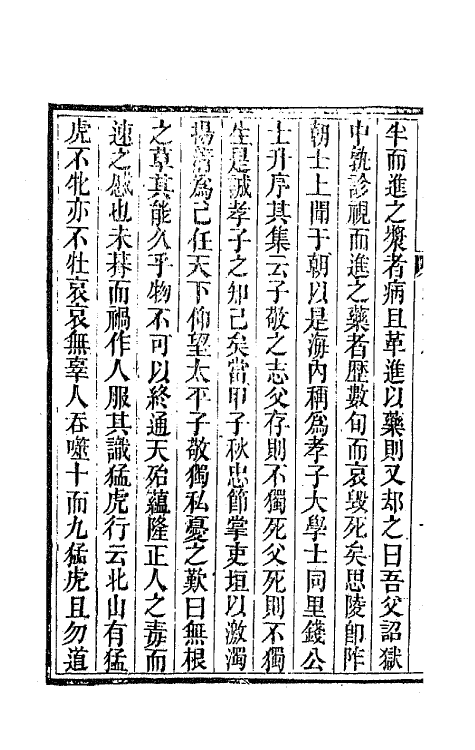 半而進之漿者病且革進以藥則又却之曰吾父詔獄
中孰診視而進之藥者歷數旬而哀毀死矣思陵卽阼
朝士上聞于朝以是海內稱爲孝子大學士同里錢公
士升序其集云子敬之志父存則不獨死父死則不獨
生是誠孝子之知己矣當甲子秋忠節掌吏垣以激濁
揚淸爲己任天下仰望太平子敬獨私憂之歎曰無根
之草其能久乎物不可以終通天殆蘊隆正人之毒而
速之慼也未朞而禍作人服其識猛虎行云北山有猛
虎不牝亦不牡哀哀無辜人吞噬十而九猛虎且勿道